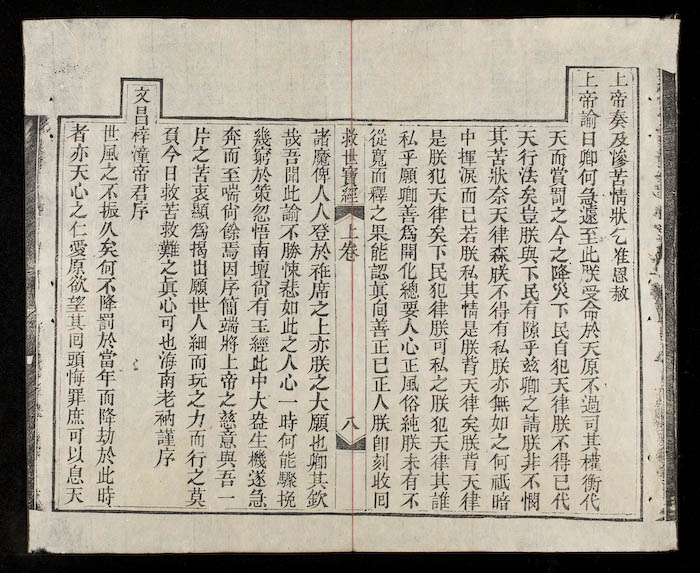 上帝奏及慘苦情狀乞准恩赦
上帝諭曰卿何急遽至此朕受命於天原不過司其權衡代
天而賞罰之今之降災下民自犯天律朕不得已代
天行法矣豈朕與下民有隙乎茲卿之請朕非不憫
其苦狀奈天律森朕不得有私朕亦無如之何祇暗
中揮淚而已若朕私其情是朕背天律矣朕背天律
是朕犯天律矣下民犯律朕可私之朕犯天律其誰
私乎願卿善為開化總要人心正風俗純朕未有不
從寬而釋之果能認眞向善正已正人朕卽刻收回
救世寶經 上卷 八
諸魔俾人人登於袵席之上亦朕之大願也卿其欽
哉吾聞此諭不勝悚悲如此之人心一時何能驟挽
幾窮於策忽悟南壇尙有玉經此中大叅生機遂急
奔而至喘尙餘焉因序簡端將上帝之慈意與吾一
片之苦衷顯為揭出願世人細而玩之力而行之莫
負今日救苦救難之眞心可也海南老衲謹序
文昌梓潼帝君序
世風之不振久矣何不降罰於當年而降劫於此時
者亦天心之仁愛原欲望其囘頭悔罪庶可以息天